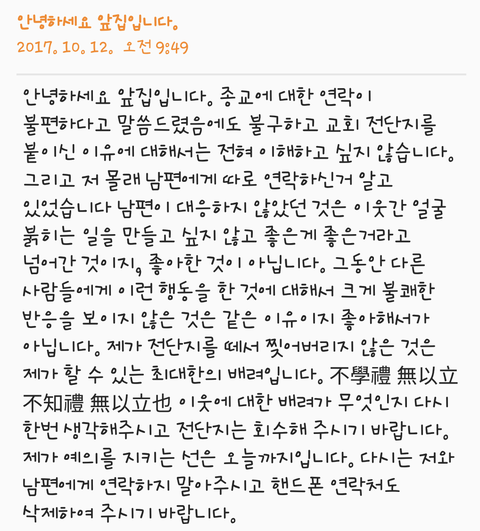 안녕하세요 앞집입니다.
2017. 10. 12. 오전 9:49
안녕하세요 앞집입니다. 종교에 대한 연락이
불편하다고 말씀드렸음에도 불구하고 교회 전단지를
붙이신 이유에 대해서는 전혀 이해하고 싶지 않습니다.
그리고 저 몰래 남편에게 따로 연락하신거 알고
있었습니다 남편이 대응하지 않았던 것은 이웃간 얼굴
붉히는 일을 만들고 싶지 않고 좋은게 좋은거라고
넘어간 것이지, 좋아한 것이 아닙니다. 그동안 다른
사람들에게 이런 행동을 한 것에 대해서 크게 불쾌한
반응을 보이지 않은 것은 같은 이유이지 좋아해서가
아닙니다. 제가 전단지를 떼서 찢어버리지 않은 것은
제가 할 수 있는 최대한의 배려입니다. 不學禮 無以立
不知禮 無以立也 이웃에 대한 배려가 무엇인지 다시
한번 생각해주시고 전단지는 회수해 주시기 바랍니다.
제가 예의를 지키는 선은 오늘까지입니다. 다시는 저와
남편에게 연락하지 말아주시고 핸드폰 연락처도
삭제하여 주시기 바랍니다.